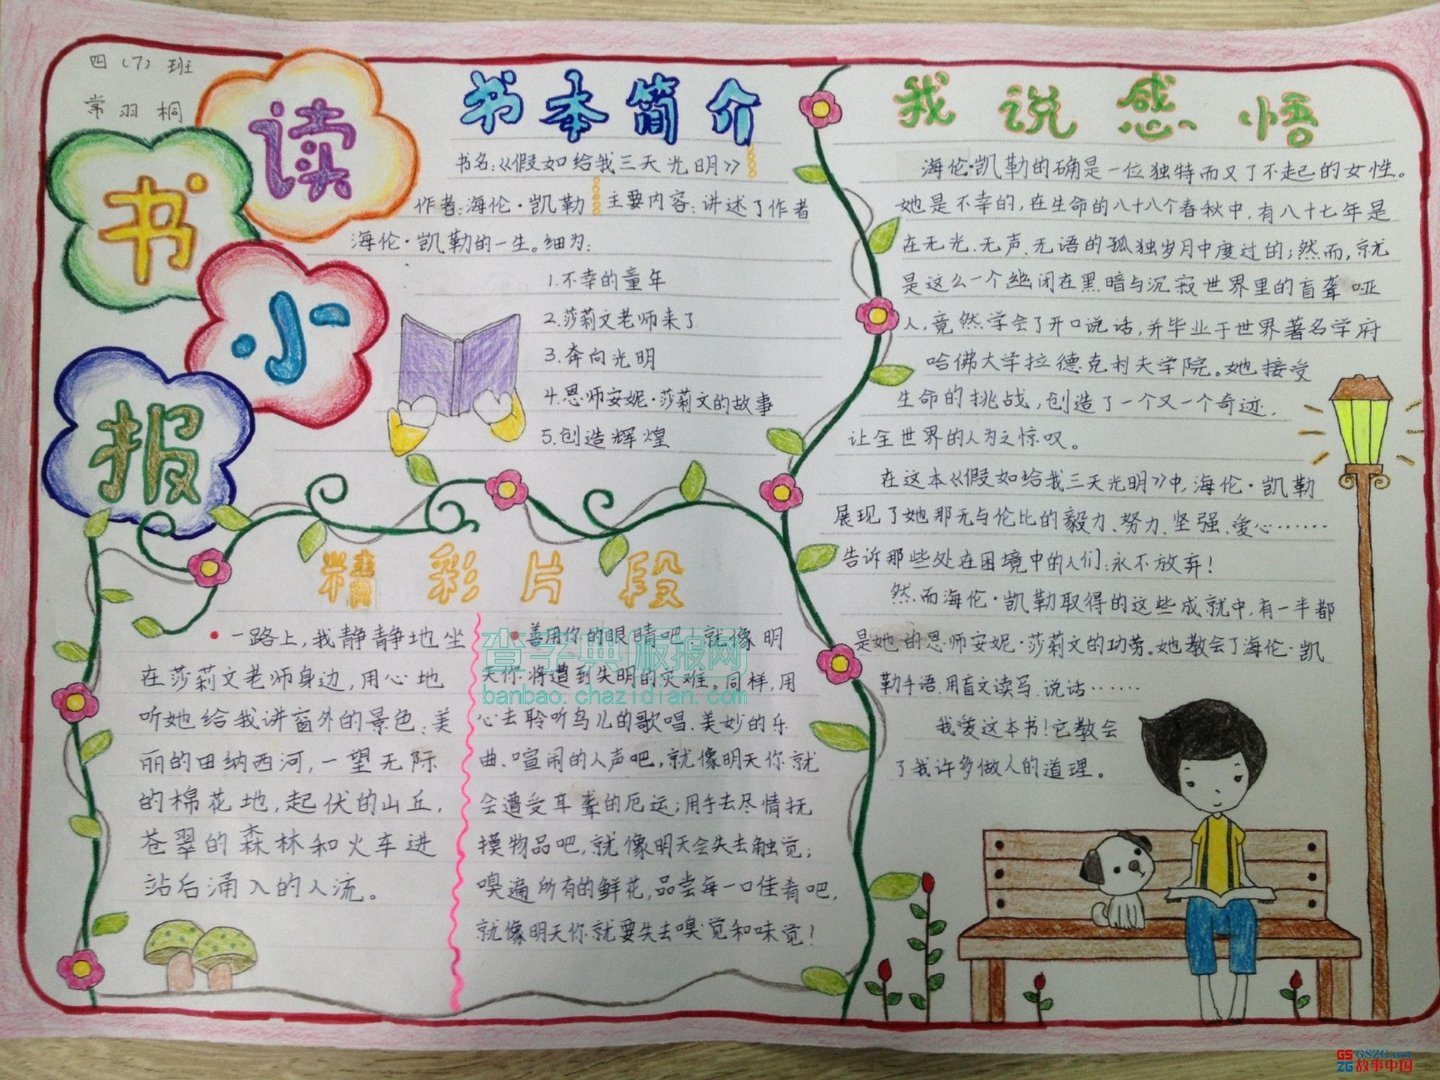 四(7)班
常羽桐
读
书
小
报
书本简介
书名:《假如给我三天光明》
作者:海伦·凯勒 主要内容:讲述了作者
海伦·凯勒的一生。细为:
1.不幸的童年
2.莎莉文老师来了
3.奔向光明
4.恩师安妮·莎莉文的故事
5.创造辉煌
精彩片段
一路上,我静静地坐
在莎莉文老师身边,用心地
听她给我讲窗外的景色:美
丽的田纳西河,一望无际
的棉花地,起伏的山丘,
苍翠的森林和火车进
站后涌入的人流。
善用你的眼睛吧,就像明
天你将遭到失明的灾难。同样,用
心去聆听鸟儿的歌唱、美妙的乐
曲、喧闹的人声吧,就像明天你就
会遭受耳聋的厄运;用手去尽情抚
摸物品吧,就像明天会失去触觉;
嗅遍所有的鲜花,品尝每一口佳肴吧,
就像明天你就要失去嗅觉和味觉!
我说感悟
海伦·凯勒的确是一位独特而又了不起的女性。
她是不幸的,在生命的八十八个春秋中,有八十七年是
在无光、无声、无语的孤独岁月中度过的;然而,就
是这么一个幽闭在黑暗与沉寂世界里的盲聋哑
人,竟然学会了开口说话,并毕业于世界著名学府
哈佛大学拉德克利夫学院。她接受
生命的挑战,创造了一个又一个奇迹,
让全世界的人为之惊叹。
在这本《假如给我三天光明》中,海伦·凯勒
展现了她那无与伦比的毅力、努力、坚强、爱心……
告诉那些处在困境中的人们:永不放弃!
然而海伦·凯勒取得的这些成就中,有一半都
是她的恩师安妮·莎莉文的功劳。她教会了海伦·凯
勒手语,用盲文读写、说话……
我爱这本书!它教会
了我许多做人的道理。
查字典板报网
banbao.chazidian.com
GSZG.net
故事中国